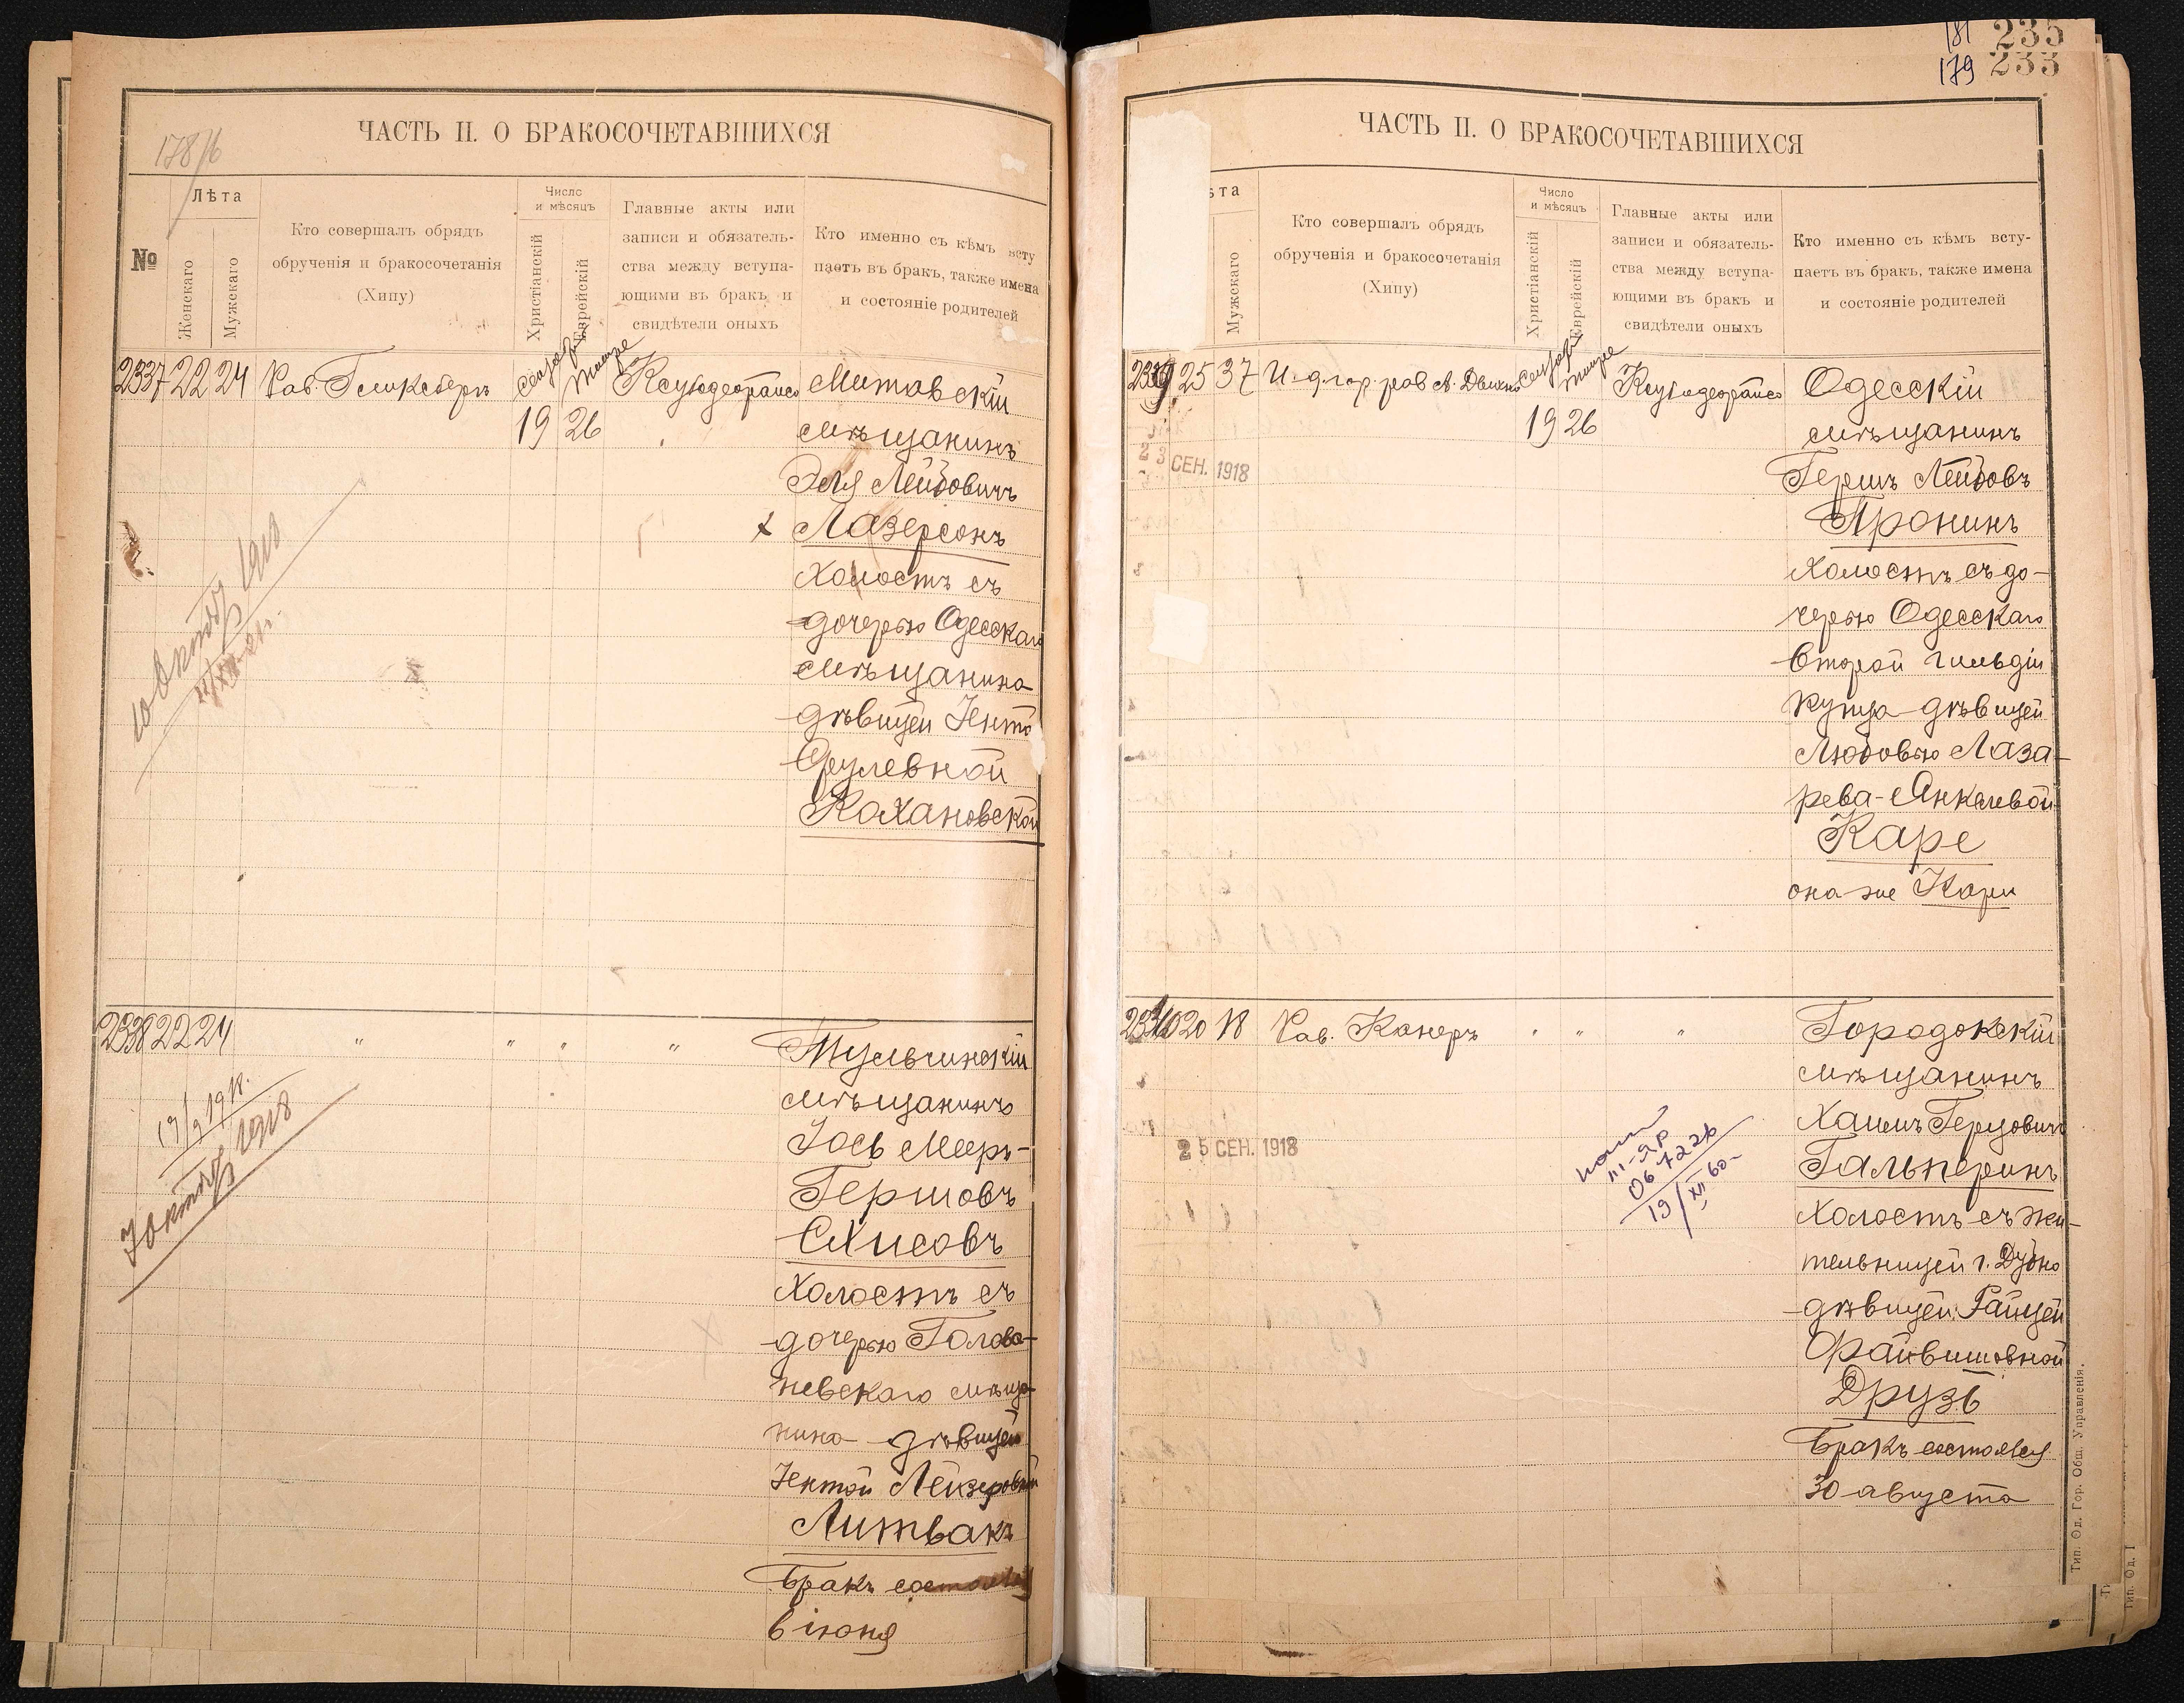 178/6
ЧАСТЬ II. О БРАКОСОЧЕТАВШИХСЯ
№
Лѣта
Женскаго
Мужескаго
Кто совершалъ обрядъ
обрученія и бракосочетанія
(Хипу)
Число
и мѣсяцъ
Христіанскій
Еврейскій
Главные акты или
записи и обязатель-
ства между вступа-
ющими въ бракъ и
свидѣтели оныхъ
Кто именно съ кѣмъ всту
паетъ въ бракъ, также имена
и состояніе родителей
2337 22 24 Рав. Гликсбергъ
19 26
Митавскій
мѣщанинъ
Эля Лейбовичъ
х Лазерсонъ
холостъ съ
дочерью Одесскаго
мѣщанина
дѣвицей Іентой
Срулевной
Кохановской
1918
2338 22 24 " " " "
Тульчинскій
мѣщанинъ
Іось Меер-
Гершовъ
Слисовъ
холостъ съ
дочерью Голова-
невскаго мѣща-
нина дѣвицей
Іентой Лейзеровной
Литвакъ
Бракъ состоялся
6 іюня
1918
181 235
179 233
ЧАСТЬ II. О БРАКОСОЧЕТАВШИХСЯ
ѣта
Мужскаго
Кто совершалъ обрядъ
обрученія и бракосочетанія
(Хипу)
Число
и мѣсяцъ
Христіанскій
Еврейскій
Главные акты или
записи и обязатель-
ства между вступа-
ющими въ бракъ и
свидѣтели оныхъ
Кто именно съ кѣмъ всту-
паетъ въ бракъ, также имена
и состояніе родителей
2339 25 37 И. д. гор. рав
19 26
23 СЕН. 1918
Одесскій
мѣщанинъ
Гершъ Лейбовъ
Пронинъ
холостъ съ до-
черью Одесскаго
второй гильдіи
купца дѣвицей
Любовью Лаза-
рева-Янкелевой
Каре
она же Кари
2340 20 18 Рав. Канеръ " " "
25 СЕН. 1918
Городокскій
мѣщанинъ
Хаимъ Герцовичъ
Гальперинъ
холостъ съ жи-
тельницей г. Дубно
дѣвицей Райцей
Файвишовной
Друзь
Бракъ состоялся
30 августа
III-ЯР
19/XII 60-
Тип. Од. Гор. Общ. Управленія.
Тип. Од. Г